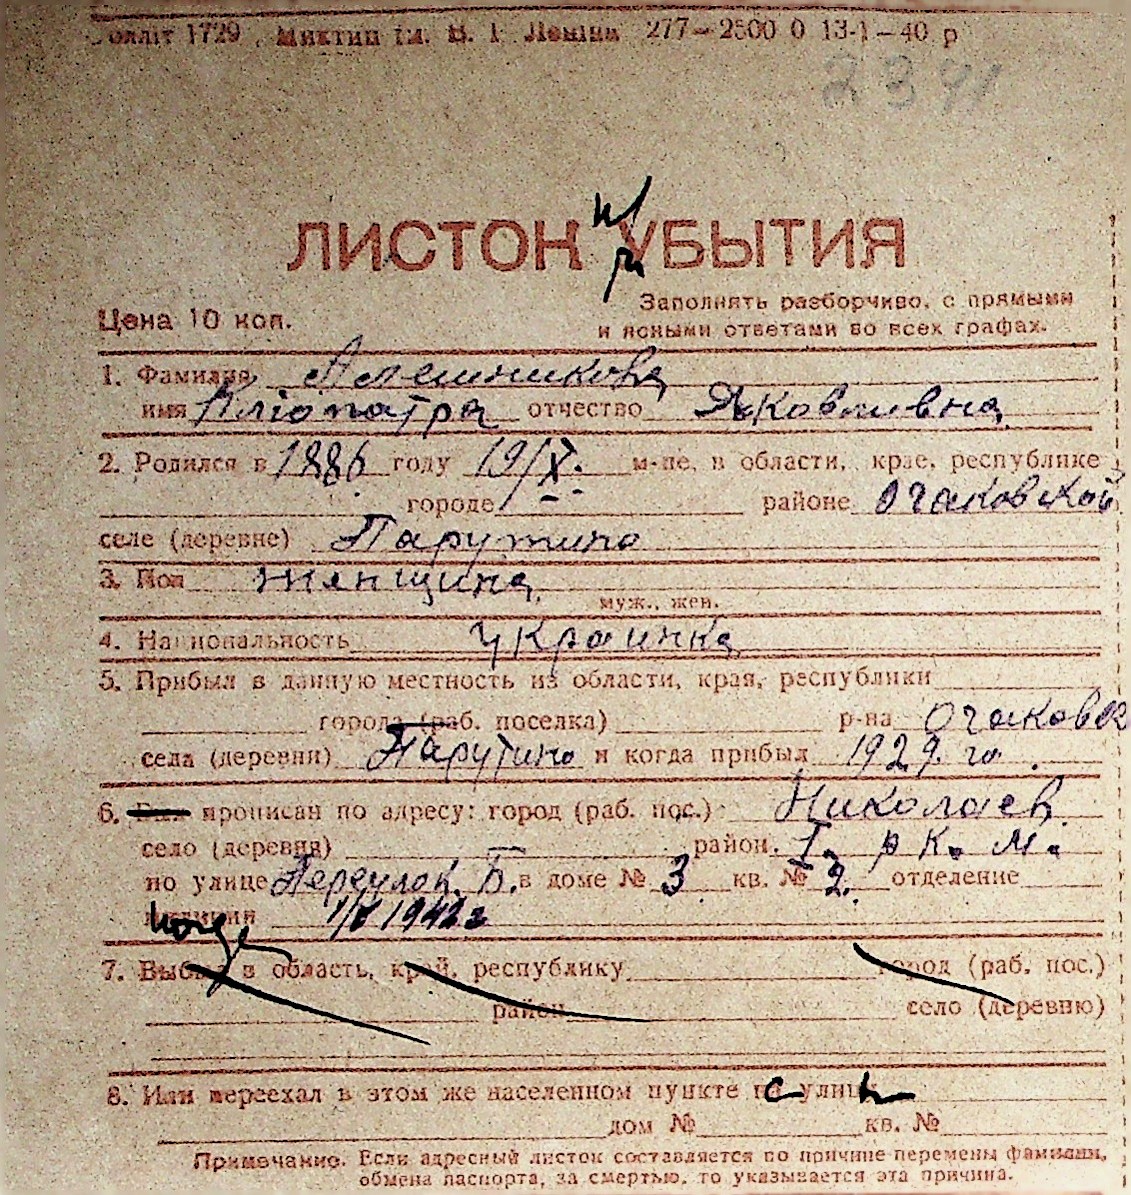 оллit 1729 , Миктип ім. В. І. Леніна 277—2500 0 13-1—40 р
2391
ЛИСТОК УБЫТИЯ
Цена 10 коп.
Заполнять разборчиво, с прямыми
и ясными ответами во всех графах.
1. Фамилия Алешникова
имя Кліопатра отчество Яковливна
2. Родился в 1886 году 19/X. м-це, в области, крае, республике
городе районе Очаковской
селе (деревне) Парутино
3. Пол женщина
муж., жен.
4. Национальность Украинка
5. Прибыл в данную местность из области, края, республики
города (раб. поселка) р-на Очаковск
села (деревни) Парутино и когда прибыл 1929 го.
6. Был прописан по адресу: город (раб. пос.) Николаев
село (деревня) район. I. р к. м.
по улице Переулок. Б. в доме № 3 кв. № 2. отделение
милиции 1942 г
7. Выбыл в область, край, республику город (раб. пос.)
район село (деревню)
8. Или переехал в этом же населенном пункте с улицы
дом № кв. №
Примечание. Если адресный листок составляется по причине перемены фамилии,
обмена паспорта, за смертью, то указывается эта причина.